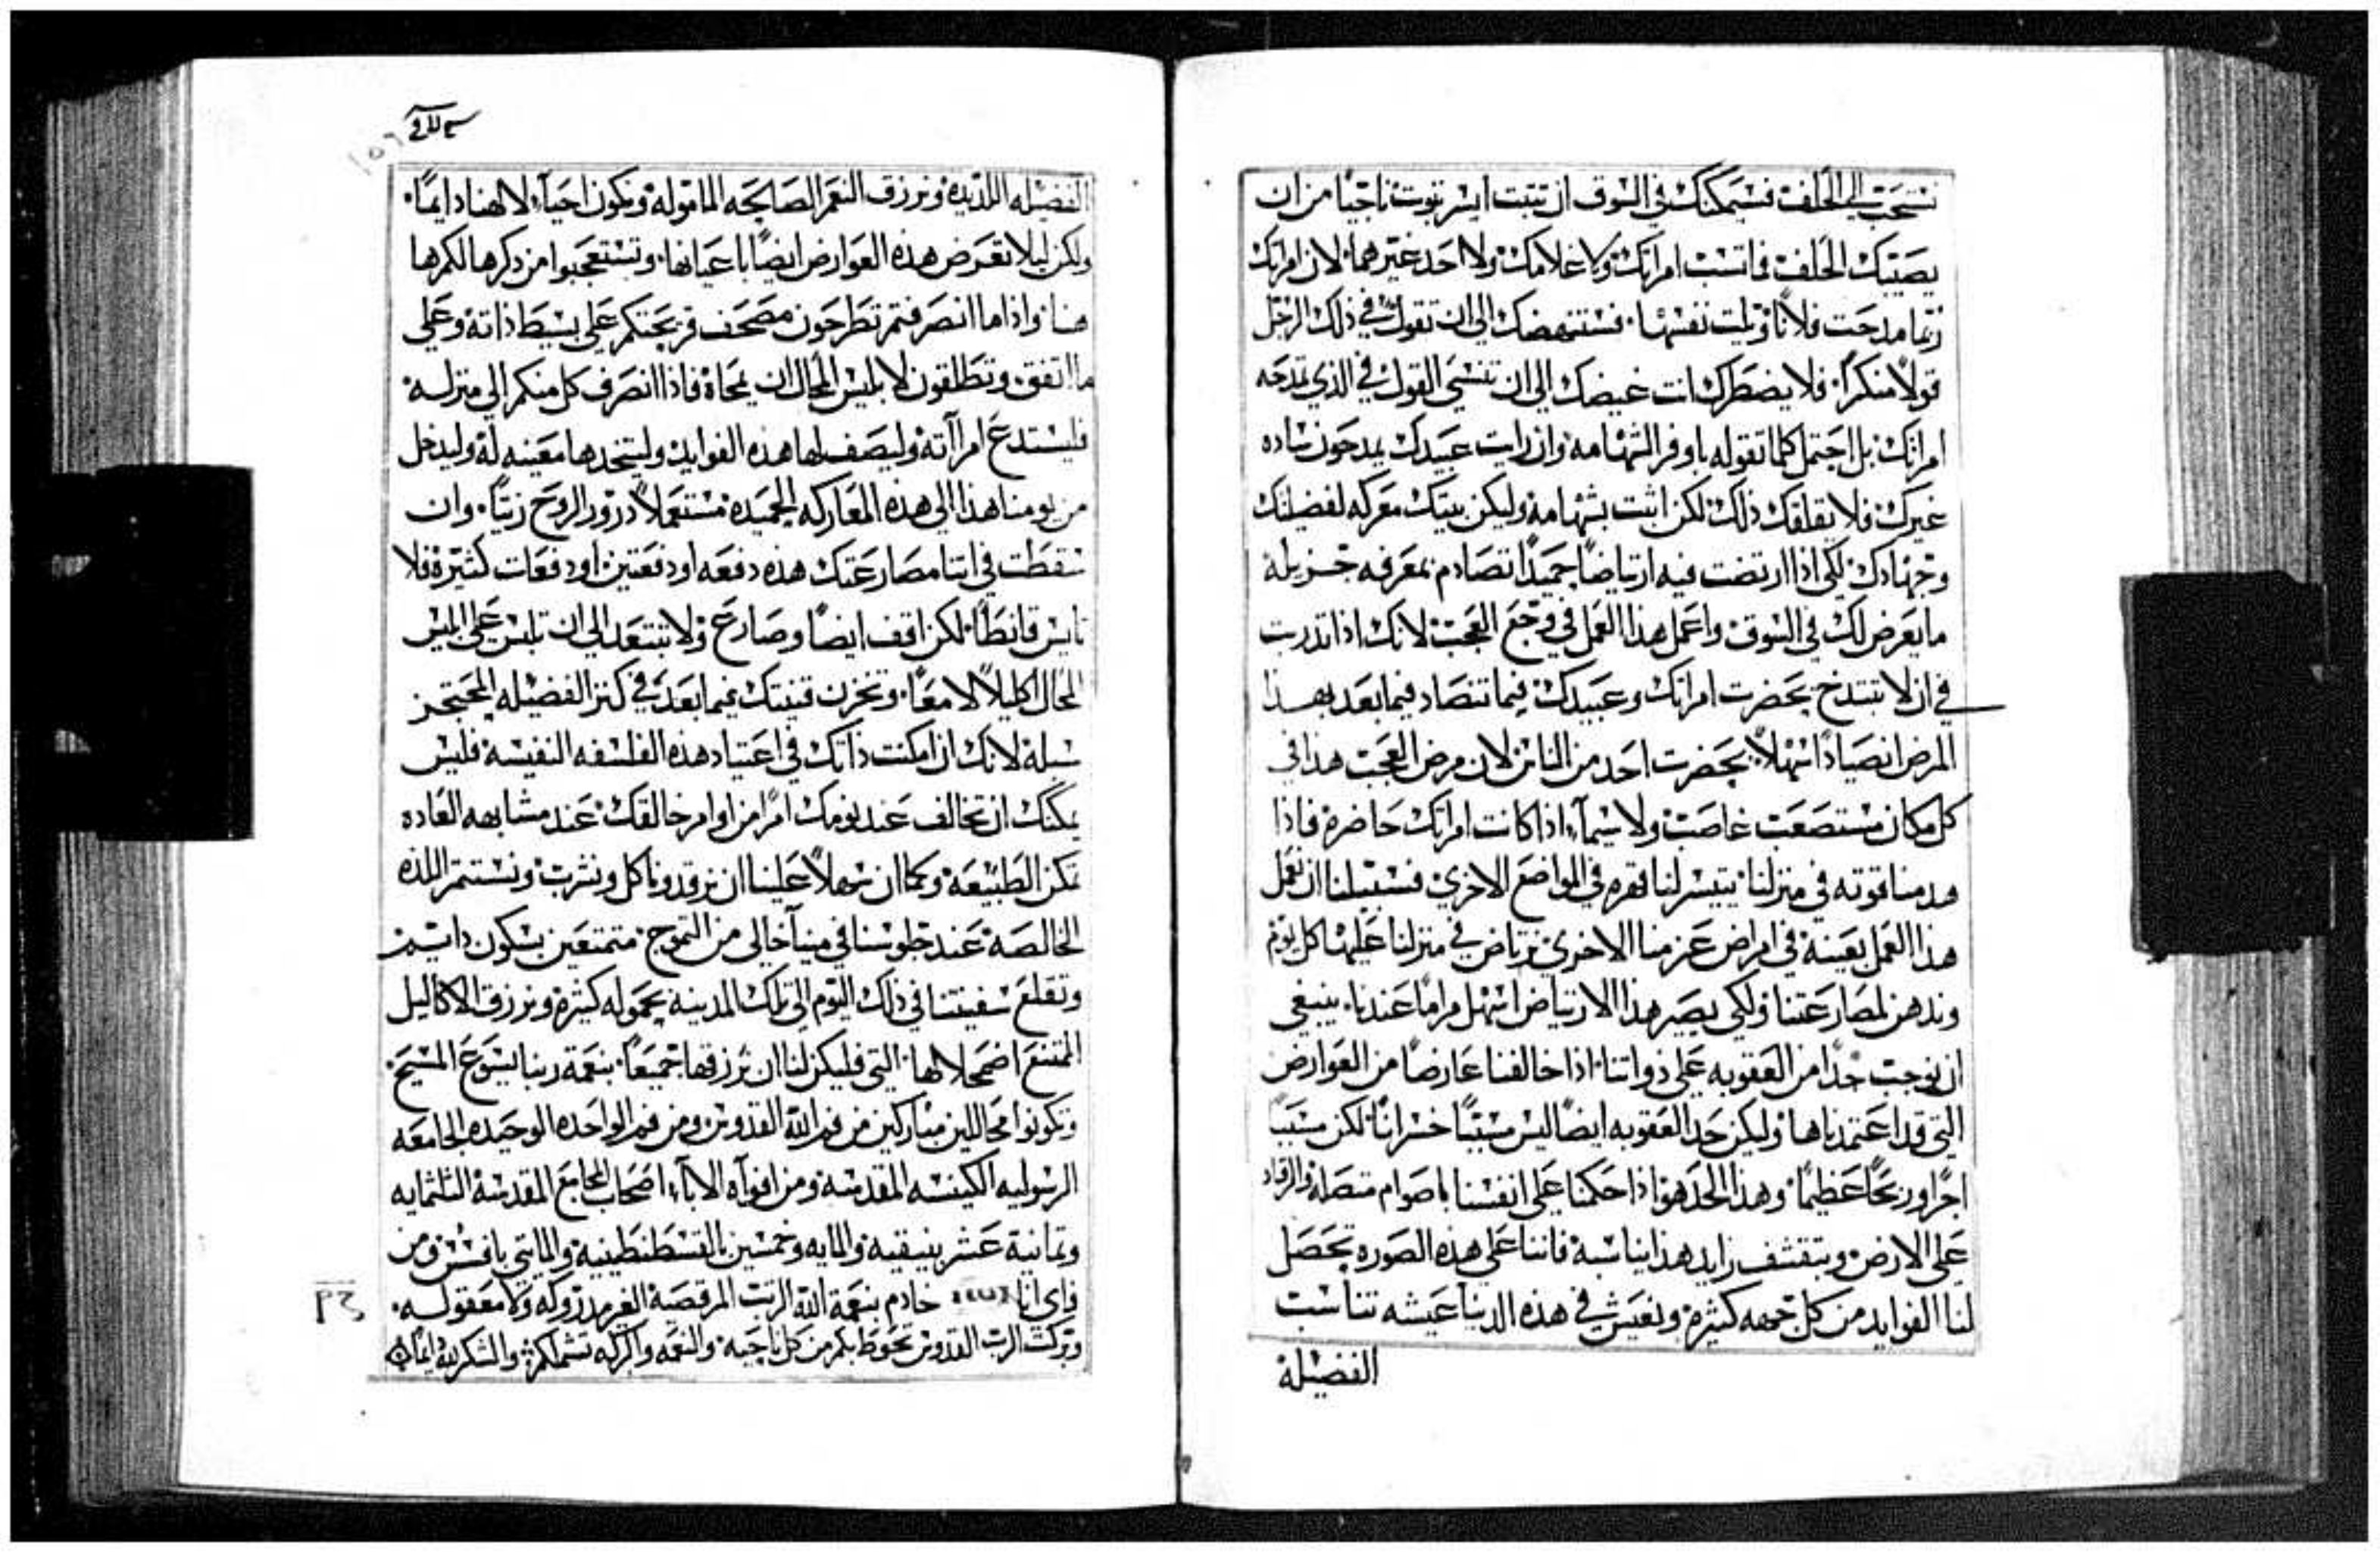 تستحب الي الحلف فسيمكنك في السوق ان تتبت ايسر تبوت ناجيًا من ان
يصيبك الحلف فاتسب امراتك ولا غلامك ولا احد غيرهما لان امراتك
ربما مدحت فلانًا وثلبت نفسها فستنهضك الى ان تقول في ذلك الرجل
قولاً منكرًا فلا يضطرك انت غيضك الى ان تنسي القول في الذي تمدحه
امراتك بل احتمل كلما تقوله باوفر الشهامه وان رايت عبيدك يمدحون ساده
غيرك فلا يقلقك ذلك لكن اثبت بشهامة وليكن بيتك معركه لفضيلتك
وجهادك لكي اذا ارتضت فيه ارتياضًا حميدًا تصادم بمعرفه جزيلة
ما يعرض لك في السوق واعمل هذا العمل في وجع العجب لانك اذا تدربت
في ان لا تبتدخ بحضرت امراتك وعبيدك فيما تنصاد فيما بعد بهذا
المرض انصيادًا سهلاً بحضرت احد من الناس لان مرض العجب هذا في
كل مكان مستصعب غاصب ولا سيمآ اذا كانت امراتك حاضرة فاذا
هدمنا قوته في منزلنا يتيسر لنا قهره في المواضع الاخري فسبيلنا ان نعمل
هذا العمل بعينة في امراض عزمنا الاخري نرتاض في منزلنا عليها كل يوم
وندهن لمصارعتنا ولكي يصير هذا الارتياض اسهل مرامًا عندنا ينبغي
ان نوجب حدًا من العقوبه على ذواتنا اذا خالفنا عارضًا من العوارض
التي قد اعتمدناها وليكن حد العقوبه ايضًا ليس مسببًا خسرانًا لكن مسببًا
اجرًا وربحًا عظيمًا وهذا الحد هو اذا حكمنا على انفسنا باصوام متصلة والرقاد
على الارض وبتقشف زايد هذا يناسبة فاننا على هذه الصوره تحصل
لنا الفوايد من كل جهه كثيرة ونعيش في هذه الدنيا عيشه تناسب
الفضيلة
الفضيله اللذيذه ونرزق النعم الصالحه المامولة ونكون احيآ لالهنا دايمًا
ولكن ليلا تعرض هذه العوارض ايضًا باعيانها وتستعجبوا من ذكرها لكم ها
هنا واذا ما انصرفتم تطرحون مصحف قريحتكم على بسيط ذاتة وعلى
ما اتفق وتطلقون لابليس المحال ان يمحاة فاذا انصرف كل منكم الى منزلـه
فليستدع امرآته وليصف لها هذه الفوايد وليتخدها معينه لة وليدخل
من يومنا هذا الى هذه المعاركه الحميده مستعملاً درور الروح زيتًا وان
سقطت في اتنا مصارعتك هذه دفعه او دفعتين او دفعات كثيرة فلا
تايس قانطًا لكن اقف ايضًا وصارع ولا تبتعد الى ان تلبس على ابليس
المحال اكليلاً لامعًا وتخزن قنيتك فيما بعد في كنز الفضيله المحتجز
سلبة لانك ان امكنت ذاتك في اعتياد هذه الفلسفه النفيسة فليس
يمكنك ان تخالف عند نومك امرًا من اوامر خالقك عند مشابهه العاده
تمكن الطبيعة وكما ان سهلاً علينا ان نرقد وناكل ونشرب ونستتمر اللذه
الخالصة عند جلوسنا في مينآ خالى من التموج متمتعين بسكون دايم
وتقلع سفينتنا في ذلك اليوم الى تلك المدينة بحموله كثيرة ونرزق الاكاليل
الممتنع اضمحلالها التي فليكن لنا ان نرزقها جميعًا بنعمة ربنا يسوع المسيح
وتكونوا محاللين مباركين من فم اللة القدوس ومن فم الواحده الوحيده الجامعه
الرسوليه الكنيسه المقدسة ومن افواه الابآء اصحاب المجامع المقدسة التلتمايه
وتمانية عشر بنيقيه والمايه وخمسين بالقسطنطينية والمايتي بافسس ومن
فاى انا خادم بنعمة اللة الرتب المرقصية الغير مدروكه ولا معقولـه
وبركت الرب القدوس تحوط بكم من كل ناحيه والنعمه والبركه تشملكم والشكر لله دايمًا